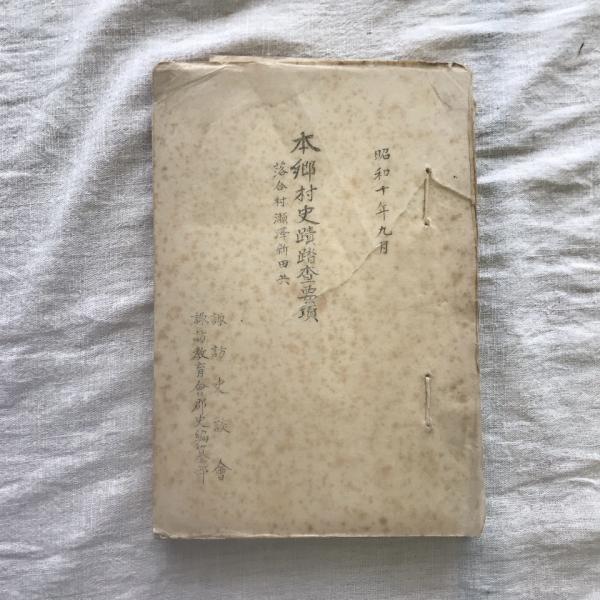 昭和十年九月
本鄕村史蹟踏査要項
落合村瀬澤新田共
諏訪史談會
諏訪敎育會郡史編纂部